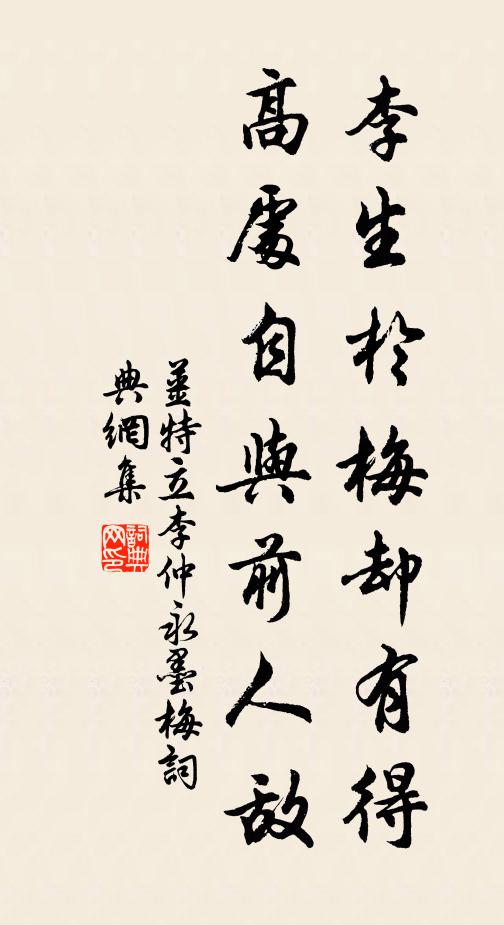 李生於梅却有得
高處自與前人敵
姜特立李仲永墨梅詞
典網集
詞典網印